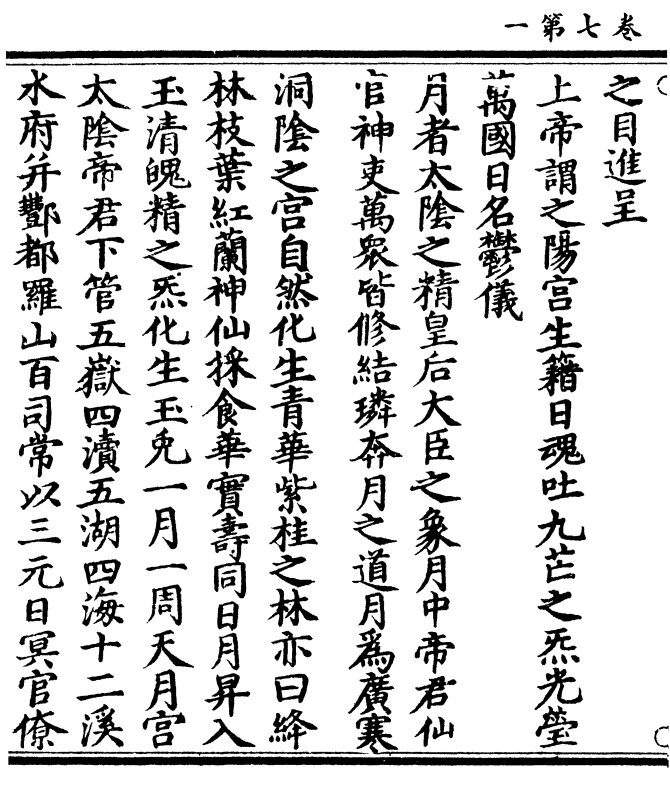 卷七第一
之目進呈
上帝謂之陽宫生籍日魂吐九芒之炁光瑩
萬國日名鬱儀
月者太陰之精皇后大臣之象月中帝君仙
官神吏萬衆皆修結璘奔月之道月爲廣寒
洞陰之宫自然化生青華紫桂之林亦曰絳
林枝葉紅蘭神仙採食華實壽同日月昇入
玉清魄精之炁化生玉兎一月一周天月宫
太陰帝君下管五嶽四瀆五湖四海十二溪
水府并酆都羅山百司常以三元日冥官僚